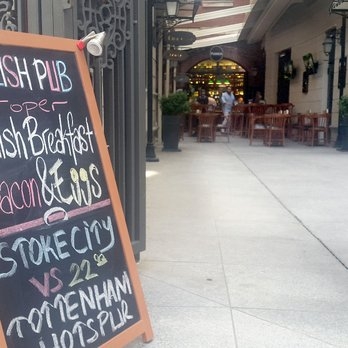 ISH PUB
OPEN
ishBreakfast
acon&Eggs
STOKE CITY
VS 22:00
TOTTENHAM
HOTSPUR